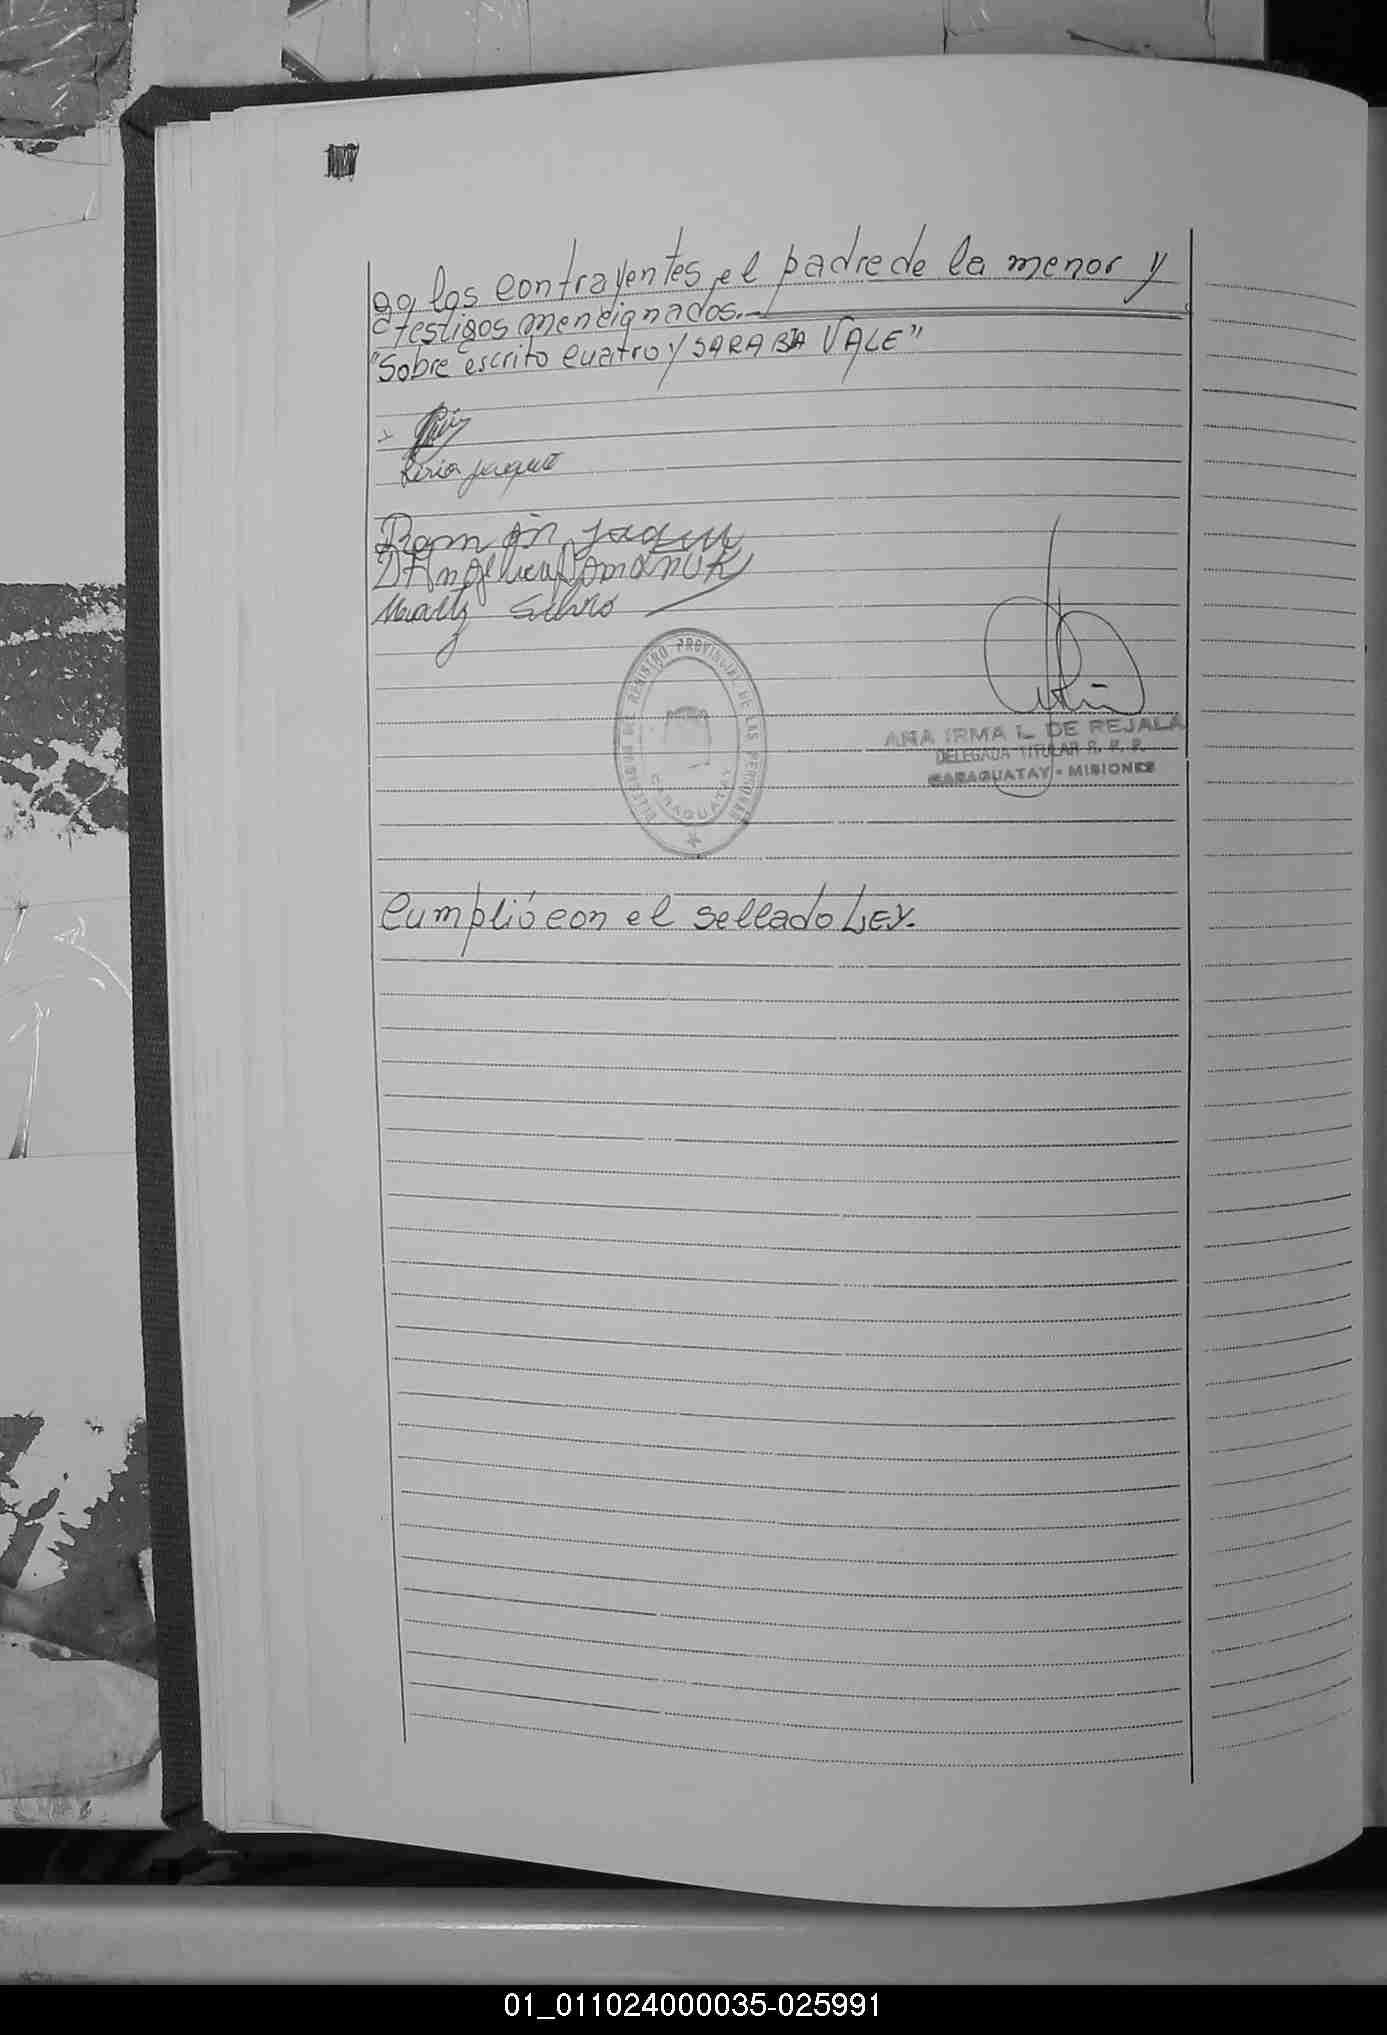 go, los contrayentes, el padre de la menor y
testigos mencionados.-
"Sobre escrito cuatro y SARABIA VALE"
Ramón
D Angelica Domanuk
Silvio
DELEGACION DEL REGISTRO PROVINCIAL DE LAS PERSONAS
CARAGUATAY
ANA IRMA L. DE REJALA
DELEGADA TITULAR R. P. P.
CARAGUATAY - MISIONES
Cumplió con el sellado LEY.
01_011024000035-025991